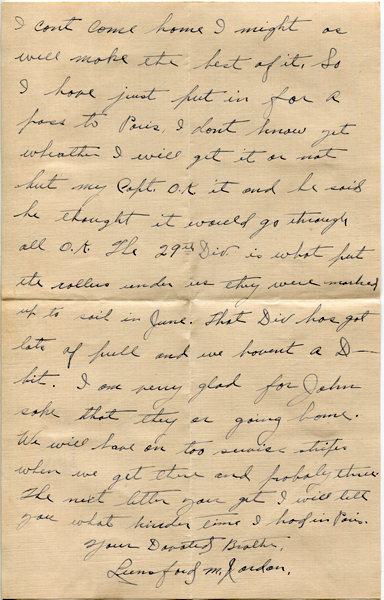 I cont come home I might as
will make the best of it, So
I have just put in for a
pass to Paris, I dont know yet
wheather I will get it or not
but my Capt. O.K it and he said
he thought it would go through
all O.K. The 29th Div is what put
the rollers under us they were marked
up to sail in June. That Div has got
lots of pull and we havent a D—
bit. I am very glad for John
sake that they ar going home.
We will have on too servise stripes
when we get there and probaly three
The next letter you get I will tell
you what kinder time I had in Paris.
Your Devoted Brother,
Lunsford M. Jordan.